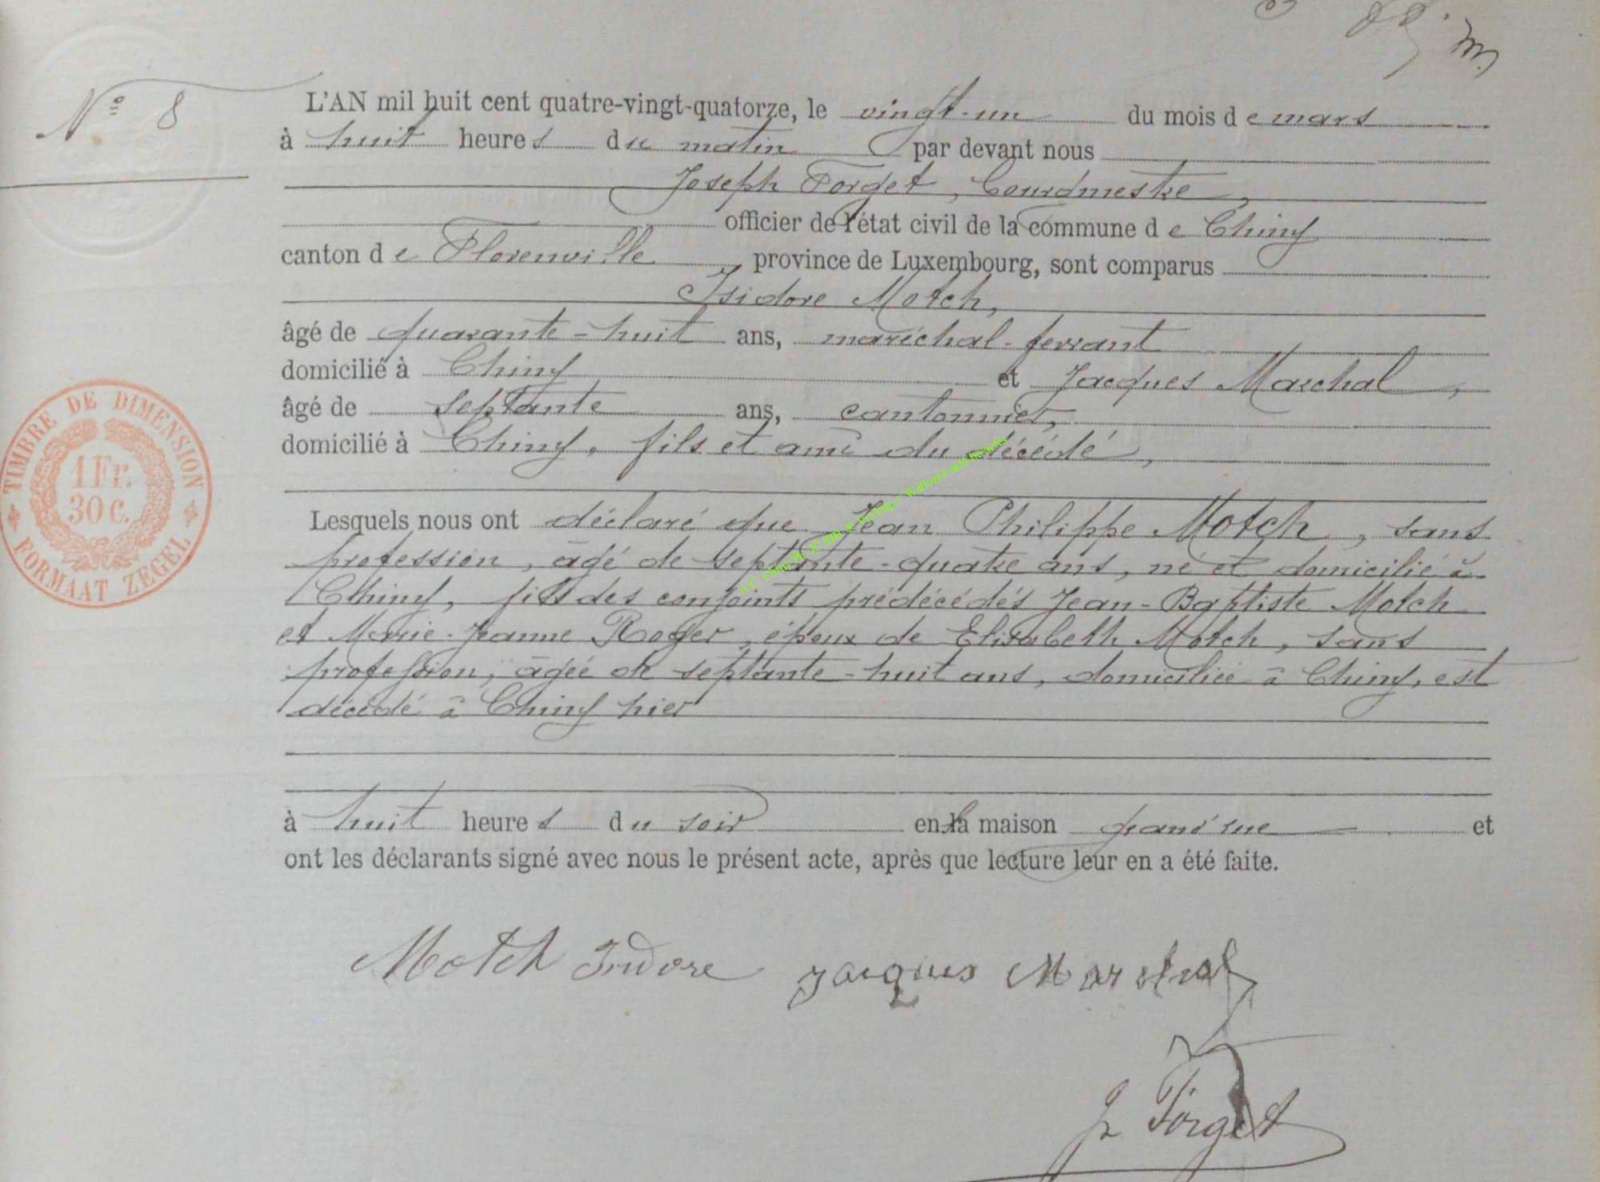 Nº 8
L'AN mil huit cent quatre-vingt-quatorze, le vingt-un du mois de mars
à huit heures du matin par devant nous
Joseph Forget, Bourgmestre,
officier de l'état civil de la commune de Chiny
canton de Florenville, province de Luxembourg, sont comparus
Isidore Motch,
âgé de quarante-huit ans, maréchal-ferrant
domicilié à Chiny et Jacques Marchal,
âgé de septante ans, cantonnier,
domicilié à Chiny, fils et ami du décédé,
Lesquels nous ont déclaré que Jean Philippe Motch, sans
profession, âgé de septante-quatre ans, né et domicilié à
Chiny, fils des conjoints prédécédés Jean-Baptiste Motch
et Marie-Jeanne Roger, époux de Elisabeth Motch, sans
profession, âgée de septante-huit ans, domiciliée à Chiny, est
décédé à Chiny hier
à huit heures du soir en la maison grand'rue et
ont les déclarants signé avec nous le présent acte, après que lecture leur en a été faite.
Motch Isidore Jacques Marchal
J Forget
TIMBRE DE DIMENSION
1 Fr.
30 C.
FORMAAT ZEGEL